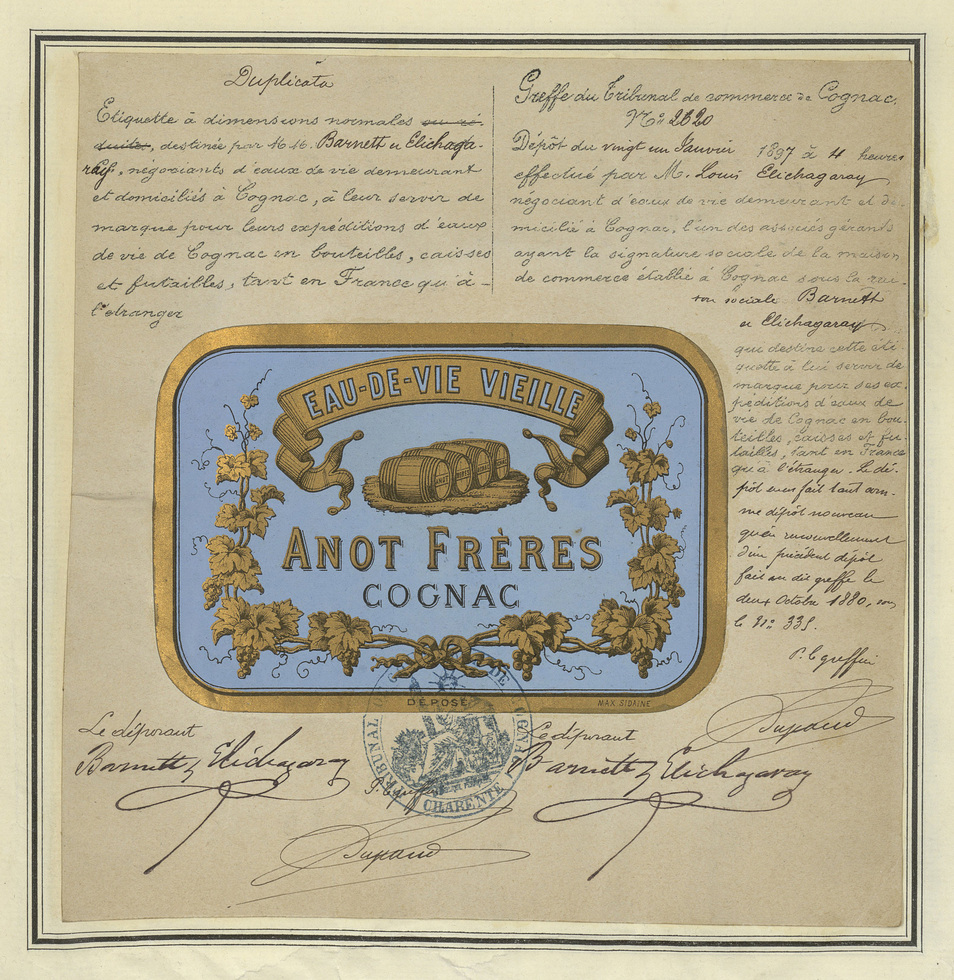 Duplicata
Etiquette à dimensions normales ou ré-
duite, destinée par M.M. Barnett et Elichaga-
ray, négociants d'eaux de vie demeurant
et domiciliés à Cognac, à leur servir de
marque pour leurs expéditions d'eaux
de vie de Cognac en bouteilles, caisses
et futailles, tant en France qu'à
l'étranger
Greffe du Tribunal de commerce de Cognac.
No: 2620
Dépôt du vingt un Janvier 1897 à 4 heures
effectué par M. Louis Elichagaray,
négociant d'eaux de vie demeurant et do-
micilié à Cognac, l'un des associés gérants
ayant la signature sociale de la maison
de commerce établie à Cognac sous la rai-
son sociale Barnett
et Elichagaray
qui destine cette éti-
quette à lui servir de
marque pour ses ex-
péditions d'eaux de
vie de Cognac en bou-
teilles, caisses et fu-
tailles, tant en France
qu'à l'étranger. Le dé-
pôt en est fait tant com-
me dépôt nouveau
qu'en renouvellement
d'un précédent dépôt
fait au dit greffe le
deux Octobre 1880, sous
le No: 335.
P. le greffier
EAU-DE-VIE VIEILLE
ANOT FRÈRES
COGNAC
DÉPOSÉ
MAX. SIDAINE
Le déposant
Barnett & Elichagaray
P. le greffier
TRIBUNAL DE COGNAC
CHARENTE
Le déposant
Barnett & Elichagaray